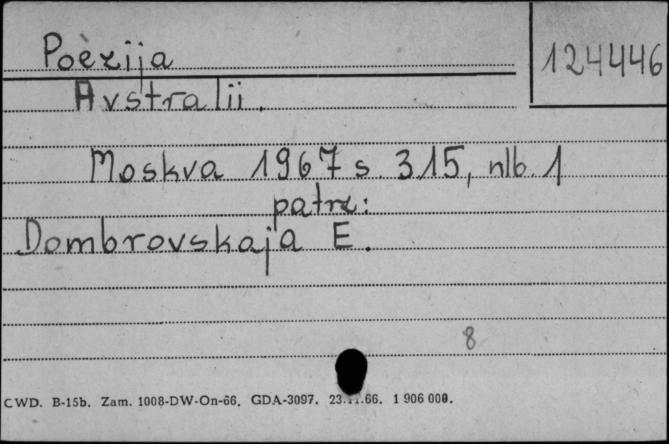 Poèzija
124446
Avstralii.
Moskva 1967 s. 315, nlb. 1
patrz:
Dombrovskaja E.
8
CWD. B-15b. Zam. 1008-DW-On-66. GDA-3097. 23.11.66. 1 906 000.